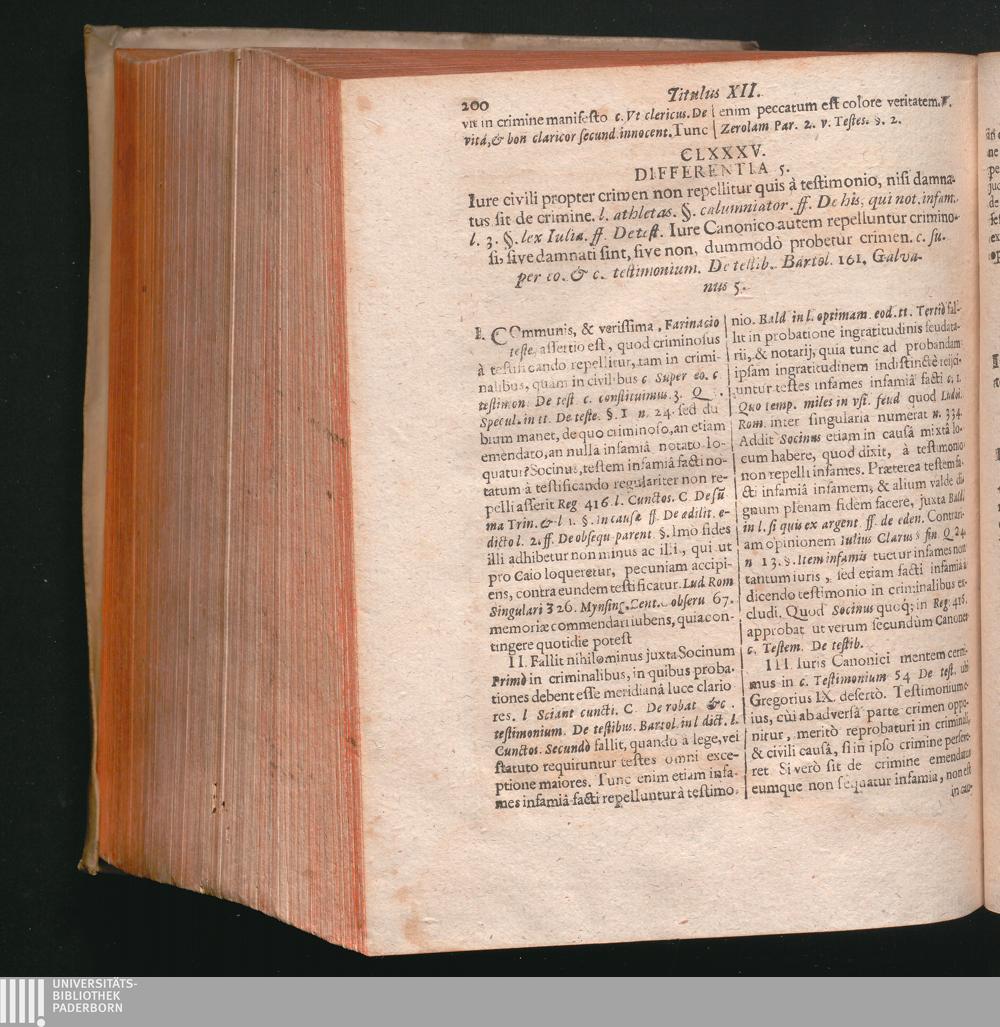 200
Titulus XII.
vit in crimine manifesto c. Vt clericus. De
vitâ, & hon claricor secund. innocent. Tunc
enim peccatum est colore veritatem. V.
Zerolam Par. 2. v. Testes. §. 2.
CLXXXV.
DIFFERENTIA 5.
Iure civili propter crimen non repellitur quis à testimonio, nisi damna-
tus sit de crimine. l. athletas. §. calumniator. ff. De his, qui not. infam.
l. 3. §. lex Iulia. ff. De test. Iure Canonico autem repelluntur crimino-
si, sive damnati sint, sive non, dummodò probetur crimen. c. su-
per eo. & c. testimonium. De testib. Bartol. 161. Galva-
nus 5.
I. COmmunis, & verissima, Farinacio
teste, assertio est, quod criminosus
à testificando repellitur, tam in crimi-
nalibus, quàm in civilibus c. Super eo. c
testimon. De test. c. constituimus. 3. Q.
Specul. in tt. De teste. §. 1 n. 24. sed du
bium manet, de quo criminoso, an etiam
emendato, an nulla infamiâ notato lo-
quatur? Socinus, testem infamiâ facti no-
tatum à testificando regulariter non re-
pelli asserit Reg 416. l. Cunctos. C. De sũ
ma Trin. & l 1. §. In causæ ff. De ædilit. e-
dicto l. 2. ff. De obsequ parent. §. Imò fides
illi adhibetur non minus ac illi, qui ut
pro Caio loqueretur, pecuniam accipi-
ens, contra eundem testificatur. Lud Rom
Singulari 326. Mynsing. Cent. observ 67.
memoriæ commendari iubens, quia con-
tingere quotidie potest
II. Fallit nihilominus juxta Socinum
Primò in criminalibus, in quibus proba-
tiones debent esse meridianâ luce clario
res. l Sciant cuncti. C. De robat &c.
testimonium. De testibus. Bartol. in l dict. l.
Cunctos. Secundò fallit, quando à lege, vel
statuto requiruntur testes omni exce-
ptione maiores. Tunc enim etiam infa-
mes infamiâ facti repelluntur à testimo-
nio. Bald in l. optimam. eod. tt. Tertiò fal-
lit in probatione ingratitudinis feudata-
rij, & notarij, quia tunc ad probandam
ipsam ingratitudinem indistinctè reijci-
untur testes infames infamiâ facti c. 1.
Quo temp. miles in vsi. feud quod Ludoi.
Rom. inter singularia numerat n. 334
Addit Socinus etiam in causâ mixtâ lo-
cum habere, quod dixit, à testimonio
non repelli infames. Præterea testem fa-
cti infamiâ infamem, & alium valde di-
gnum plenam fidem facere, juxta Bald.
in l. si quis ex argent. ff. de eden. Contrari-
am opinionem Iulius Clarus § fin Q 24.
n 13. §. Item infamis tuetur infames non
tantum iuris, sed etiam facti infamia à
dicendo testimonio in criminalibus ex-
cludi. Quod Socinus quoq; in Reg. 416.
approbat ut verum secundùm Canones
c. Testem. De testib.
III. Iuris Canonici mentem cerni-
mus in c. Testimonium 54 De test. ubi
Gregorius IX. desertò. Testimonium e-
ius, cùi ab adversâ parte crimen oppo-
nitur, meritò reprobaturi in criminali,
& civili causâ, si in ipso crimine perseve-
ret Si verò sit de crimine emendatus
eumque non sequatur infamia, non est
in cau-
UNIVERSITÄTS-
BIBLIOTHEK
PADERBORN